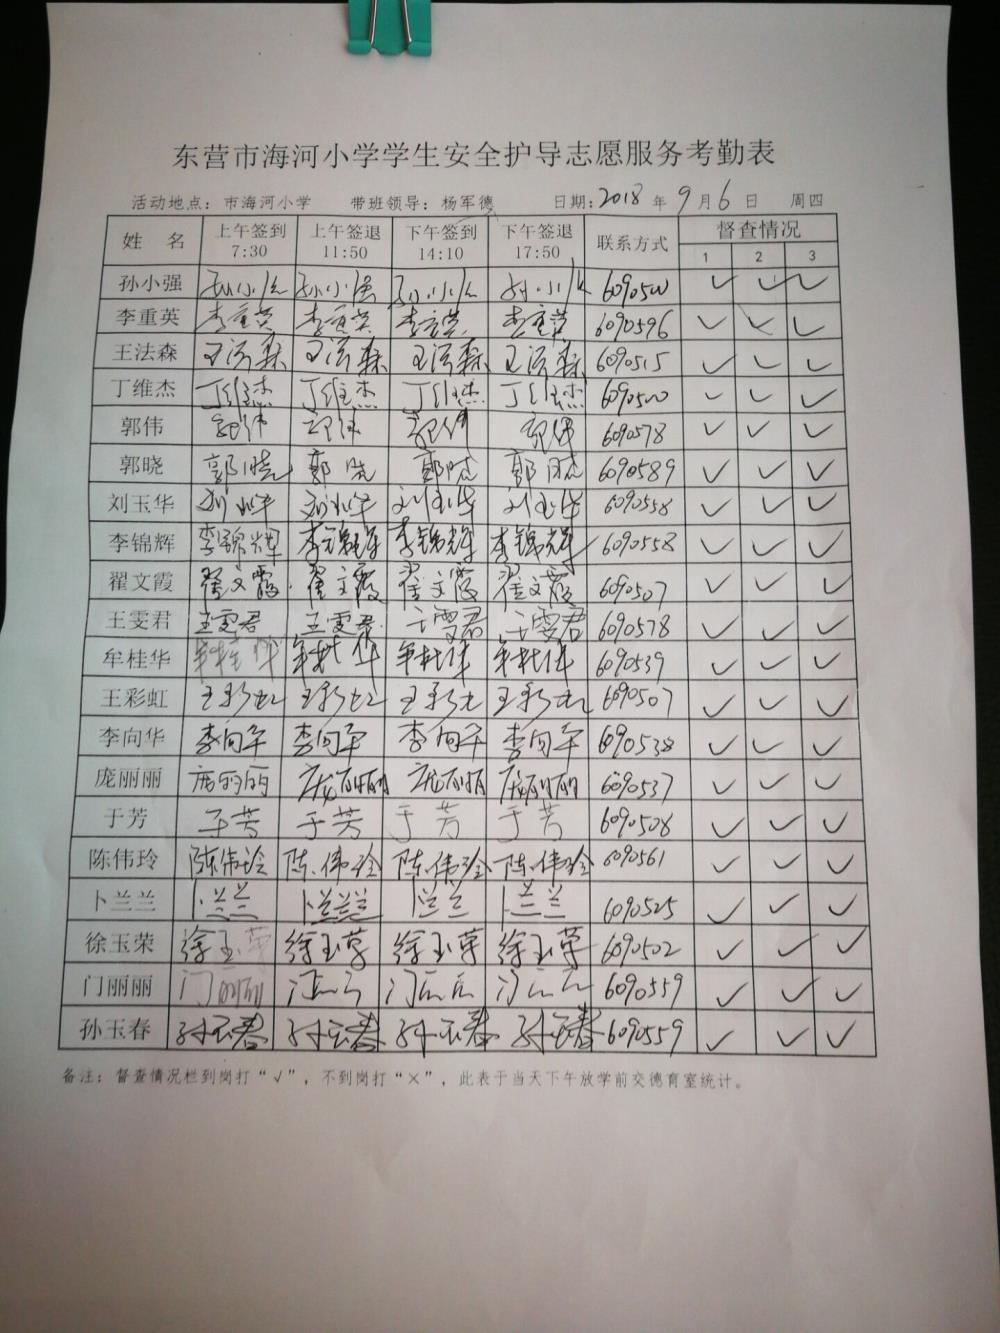 东营市海河小学学生安全护导志愿服务考勤表
活动地点：市海河小学 带班领导：杨军德 日期:2018 年 9 月 6 日 周四
姓 名 上午签到 7:30 上午签退 11:50 下午签到 14:10 下午签退 17:50 联系方式 督查情况
1 2 3
孙小强 孙小强 孙小强 孙小强 孙小强 6090500 ✓ ✓ ✓
李重英 李重英 李重英 李重英 李重英 6090596 ✓ ✓ ✓
王法森 王法森 王法森 王法森 王法森 6090515 ✓ ✓ ✓
丁维杰 丁维杰 丁维杰 丁维杰 丁维杰 6090500 ✓ ✓ ✓
郭伟 郭伟 郭伟 郭伟 郭伟 6090578 ✓ ✓ ✓
郭晓 郭晓 郭晓 郭晓 郭晓 6090589 ✓ ✓ ✓
刘玉华 刘玉华 刘玉华 刘玉华 刘玉华 6090558 ✓ ✓ ✓
李锦辉 李锦辉 李锦辉 李锦辉 李锦辉 6090558 ✓ ✓ ✓
翟文霞 翟文霞 翟文霞 翟文霞 翟文霞 6090507 ✓ ✓ ✓
王雯君 王雯君 王雯君 王雯君 王雯君 6090578 ✓ ✓ ✓
牟桂华 牟桂华 牟桂华 牟桂华 牟桂华 6090539 ✓ ✓ ✓
王彩虹 王彩虹 王彩虹 王彩虹 王彩虹 6090507 ✓ ✓ ✓
李向华 李向华 李向华 李向华 李向华 6090538 ✓ ✓ ✓
庞丽丽 庞丽丽 庞丽丽 庞丽丽 庞丽丽 6090537 ✓ ✓ ✓
于芳 于芳 于芳 于芳 于芳 6090508 ✓ ✓ ✓
陈伟玲 陈伟玲 陈伟玲 陈伟玲 陈伟玲 6090561 ✓ ✓ ✓
卜兰兰 卜兰兰 卜兰兰 卜兰兰 卜兰兰 6090525 ✓ ✓ ✓
徐玉荣 徐玉荣 徐玉荣 徐玉荣 徐玉荣 6090502 ✓ ✓ ✓
门丽丽 门丽丽 门丽丽 门丽丽 门丽丽 6090559 ✓ ✓ ✓
孙玉春 孙玉春 孙玉春 孙玉春 孙玉春 6090559 ✓ ✓ ✓
备注：督查情况栏到岗打“√”，不到岗打“×”，此表于当天下午放学前交德育室统计。